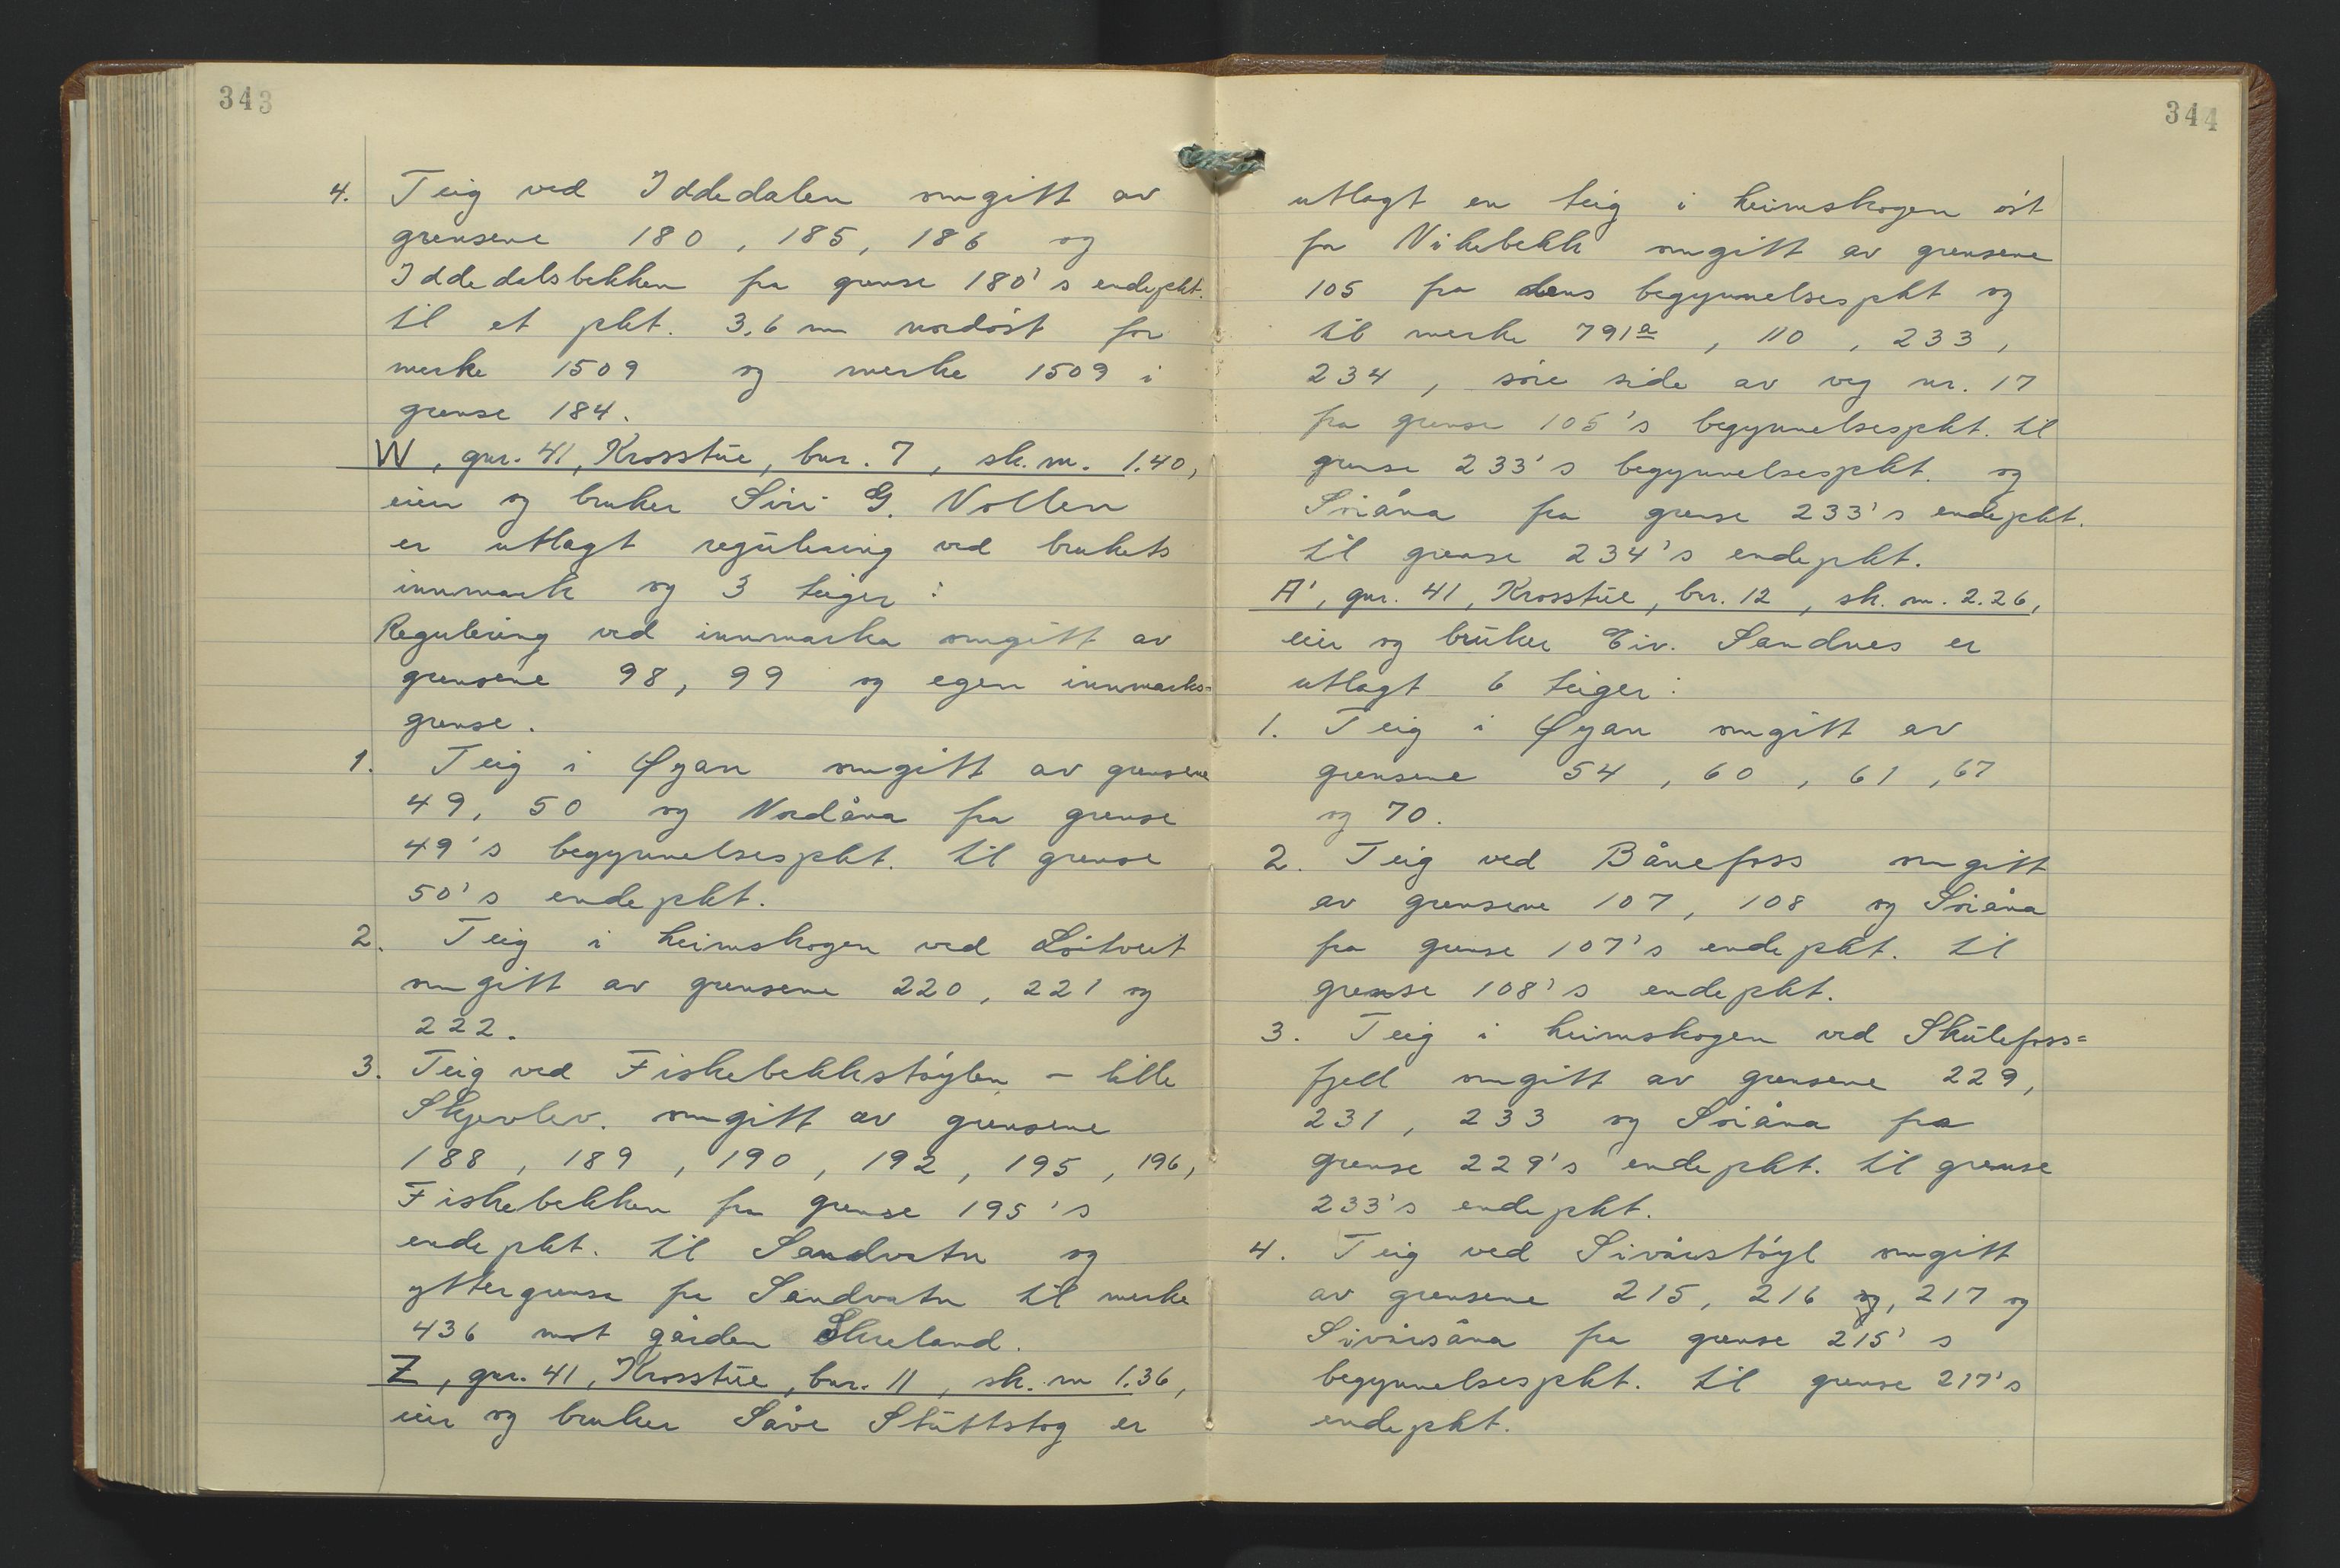 343
4. Teig ved Iddedalen omgitt av
grensene 180, 185, 186 og
Iddedalsbekken fra grense 180's endepkt.
til et pkt. 3,6 m nordöst for
merke 1509 og merke 1509 i
grense 184.
W, gnr. 41, Krosstüe, bnr. 7, sk. m. 1.40,
eier og bruker Siri G. Nollen
er utlagt regulering ved brukets
innmark og 3 teiger:
Regulering ved innmarka omgitt av
grensene 98, 99 og egen innmarks=
grense.
1. Teig i Øyan omgitt av grensene
49, 50 og Nordåna fra grense
49's begynnelsespkt. til grense
50's endepkt.
2. Teig i heimskogen ved Löitveit
omgitt av grensene 220, 221 og
222.
3. Teig ved Fiskebekkstöylen - lille
Skjevlev. omgitt av grensene
188, 189, 190, 192, 195, 196,
Fiskebekken fra grense 195's
endepkt. til Sandvatn og
yttergrense fra Sandvatn til merke
436 mot gården Skreland.
Z, gnr. 41, Krosstüe, bnr. 11, sk. m 1.36,
eier og bruker Såve Stüttstog er
344
utlagt en teig i heimskogen öst
for Nikebekk omgitt av grensene
105 fra dens begynnelsespkt og
til merke 791a, 110, 233,
234, söre side av veg nr. 17
fra grense 105's begynnelsespkt. til
grense 233's begynnelsespkt. og
Söråna fra grense 233's endepkt.
til grense 234's endepkt.
A', gnr. 41, Krosstüe, bnr. 12, sk. m. 2.26,
eier og brüker Eiv. Sandnes er
utlagt 6 teiger:
1. Teig i Øyan omgitt av
grensene 54, 60, 61, 67
og 70.
2. Teig ved Bånefoss omgitt
av grensene 107, 108 og Söråna
fra grense 107's endepkt. til
grense 108's endepkt.
3. Teig i heimskogen ved Skülefoss=
fjell omgitt av grensene 229,
231, 233 og Söråna fra
grense 229's endepkt. til grense
233's endepkt.
4. Teig ved Sivårstöyl omgitt
av grensene 215, 216 og, 217 og
Sivårsåna fra grense 215's
begynnelsespkt. til grense 217's
endepkt.